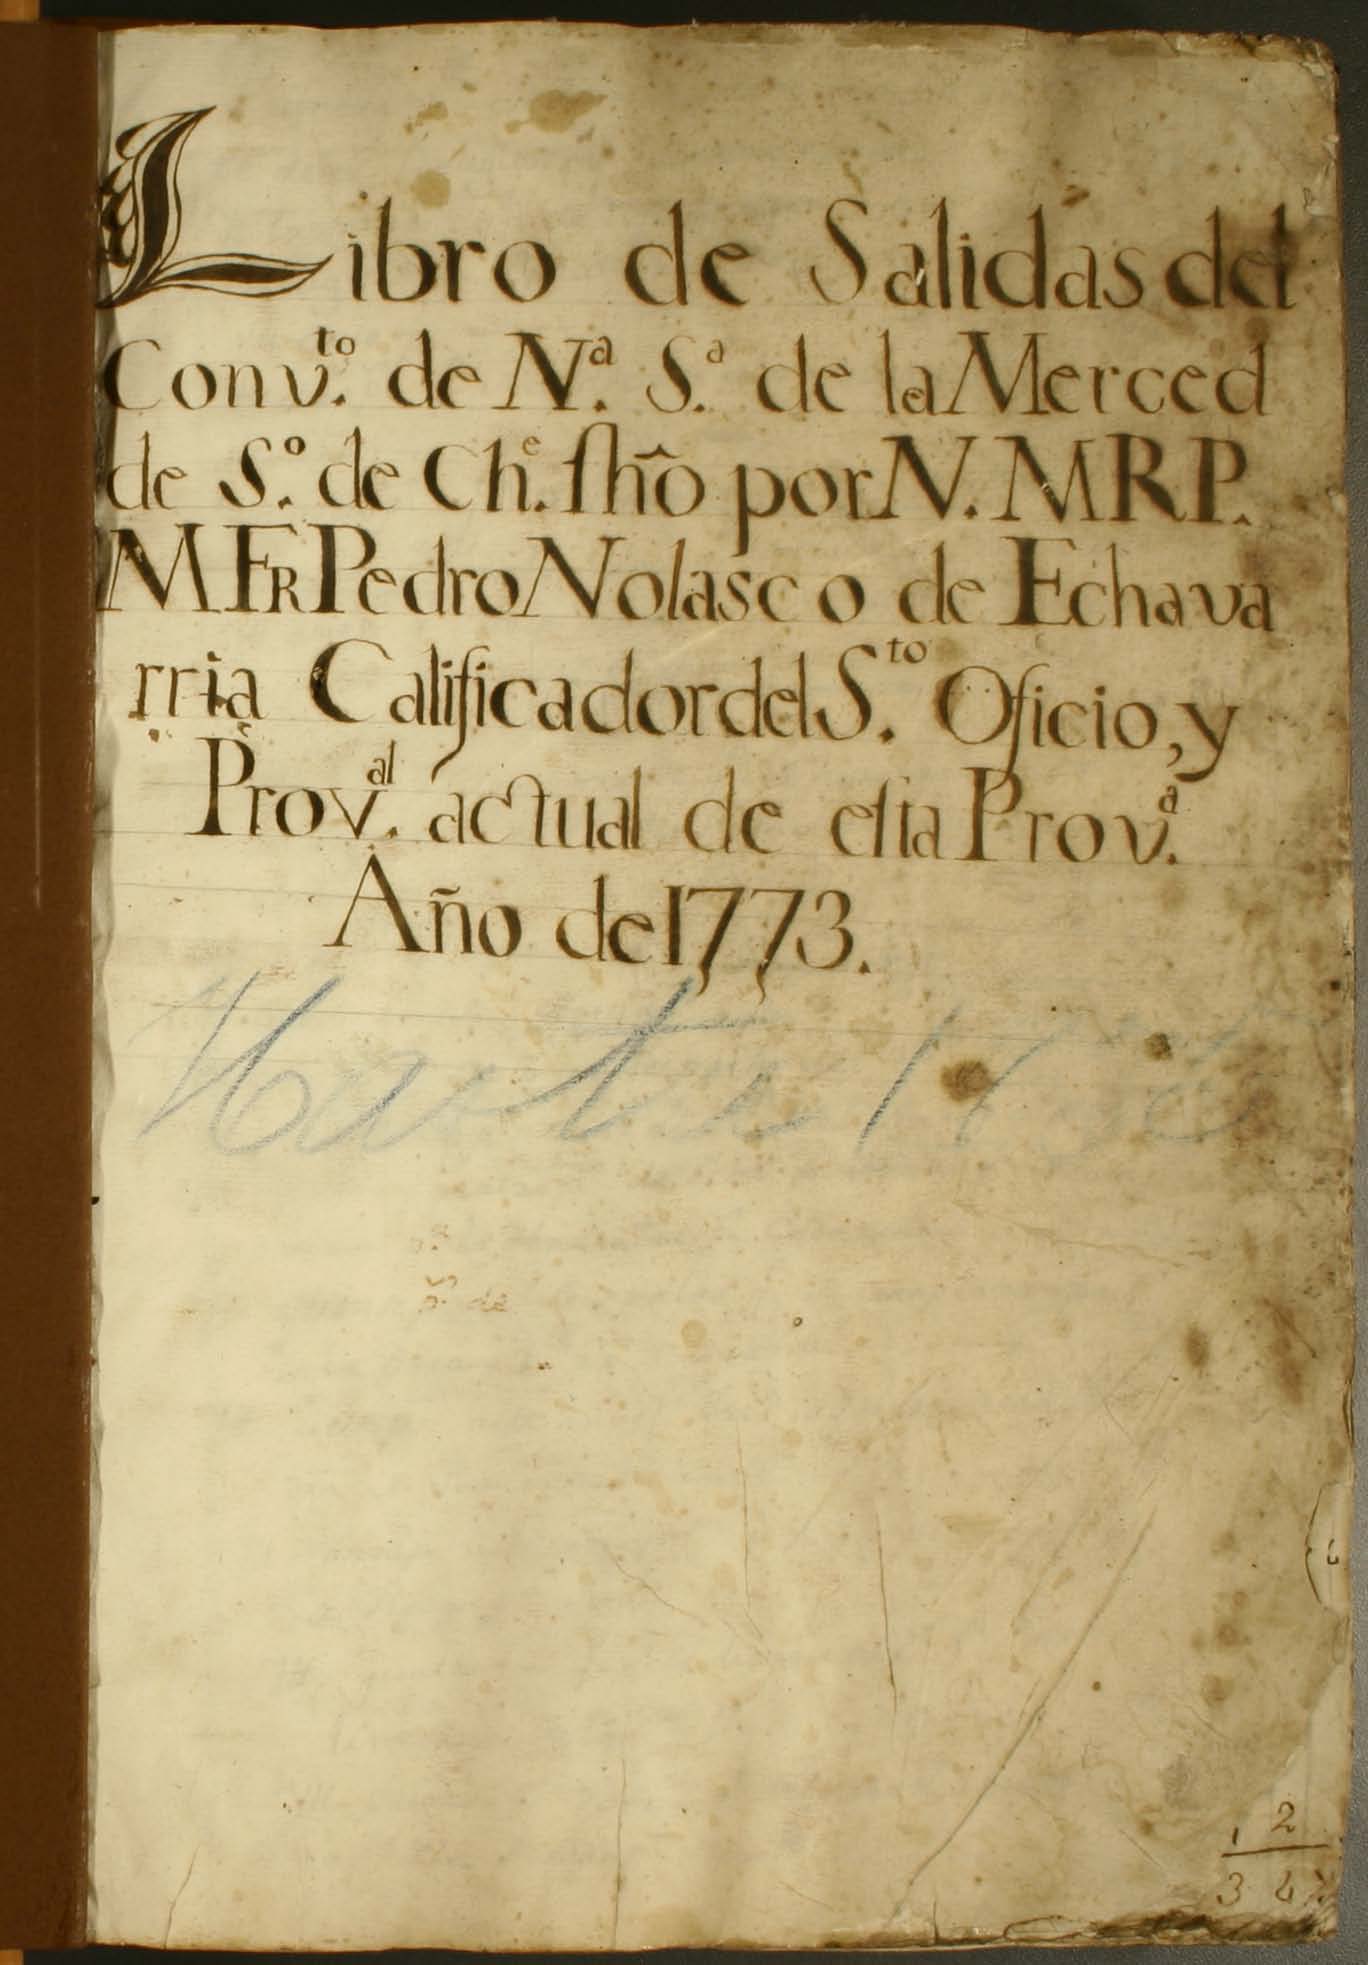 Libro de Salidas del
Conv.to de N.a S.a de la Merced
de S.o de Ch.e fho por N. M R P.
M. FR Pedro Nolasco de Echava
rria Calificador del S.to Oficio, y
Prov.al actual de esta Prov.a
Año de 1773.
Hasta
2
3 4